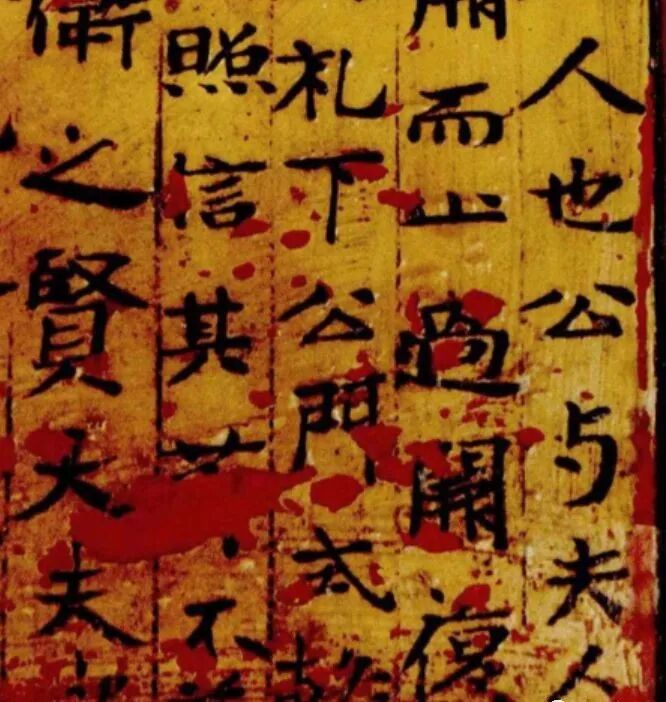 人也公与夫人
而止過闕復
礼下公門式
照信其不
衛之賢大夫